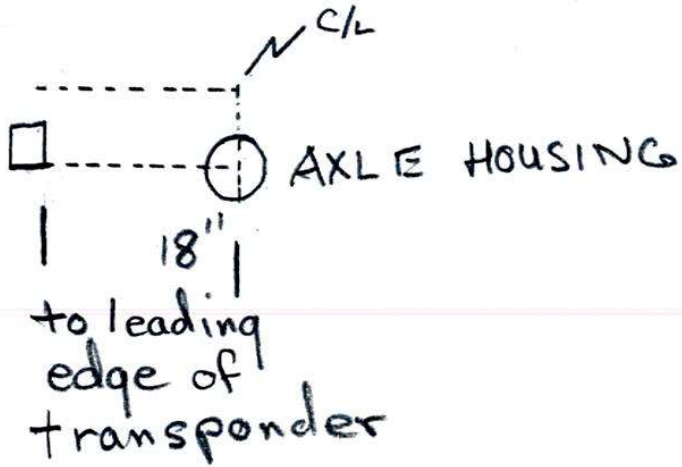 C/L
AXLE HOUSING
18"
to leading
edge of
transponder